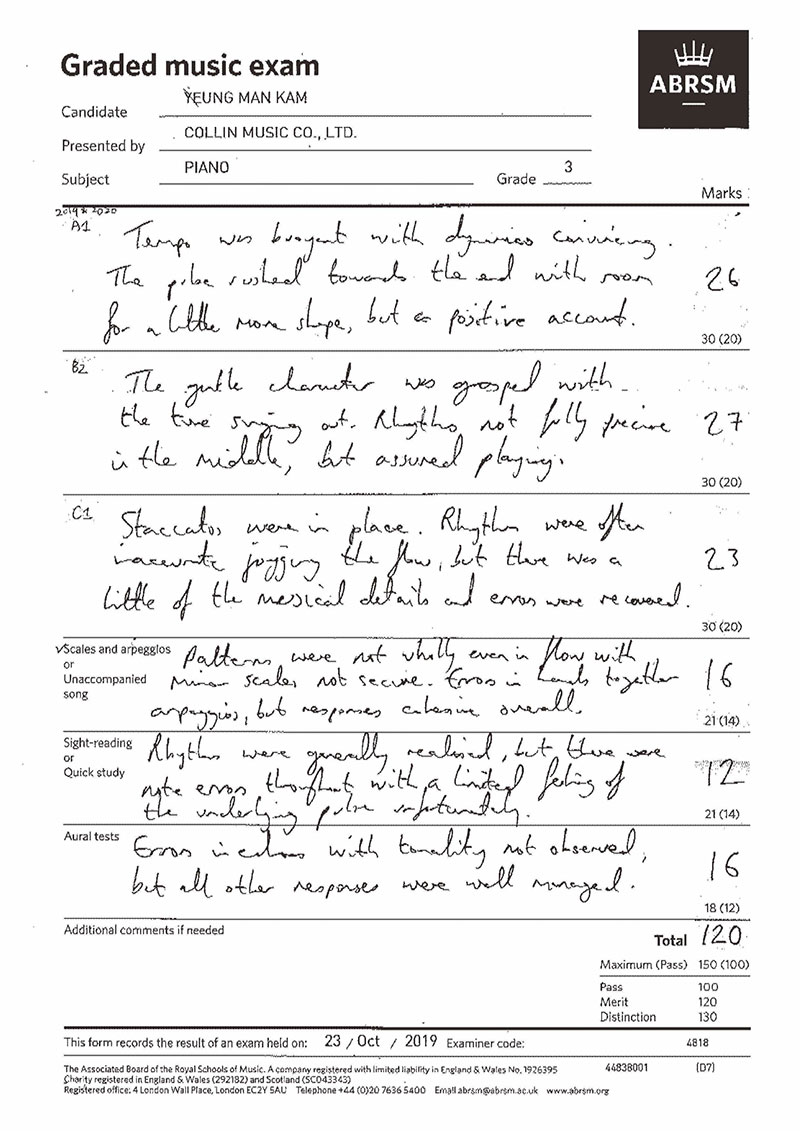 Graded music exam
ABRSM
Candidate YEUNG MAN KAM
Presented by COLLIN MUSIC CO., LTD.
Subject PIANO Grade 3
Marks
2019 & 2020
A1 Tempo was buoyant with dynamics convincing.
The pulse rushed towards the end with room 26
for a little more shape, but a positive account.
30 (20)
B2 The gentle character was grasped with
the tune singing out. Rhythms not fully precise 27
in the middle, but assured playing.
30 (20)
C1 Staccatos were in place. Rhythms were often
inaccurate jogging the flow, but there was a 23
little of the musical details and errors were recovered.
30 (20)
Scales and arpeggios Patterns were not wholly even in flow with
or
Unaccompanied minor scales not secure. Errors in hands together 16
song
arpeggios, but responses cohesive overall.
21 (14)
Sight-reading Rhythms were generally realised, but there were
or
Quick study note errors throughout with a limited feeling of 12
the underlying pulse unfortunately.
21 (14)
Aural tests Errors in echoes with tonality not observed,
but all other responses were well managed. 16
18 (12)
Additional comments if needed
Total 120
Maximum (Pass) 150 (100)
Pass 100
Merit 120
Distinction 130
This form records the result of an exam held on: 23 / Oct / 2019 Examiner code: 4818
The Associated Board of the Royal Schools of Music. A company registered with limited liability in England & Wales No. 1926395 44838001 (D7)
Charity registered in England & Wales (292182) and Scotland (SC043343)
Registered office: 4 London Wall Place, London EC2Y 5AU Telephone +44 (0)20 7636 5400 Email abrsm@abrsm.ac.uk www.abrsm.org